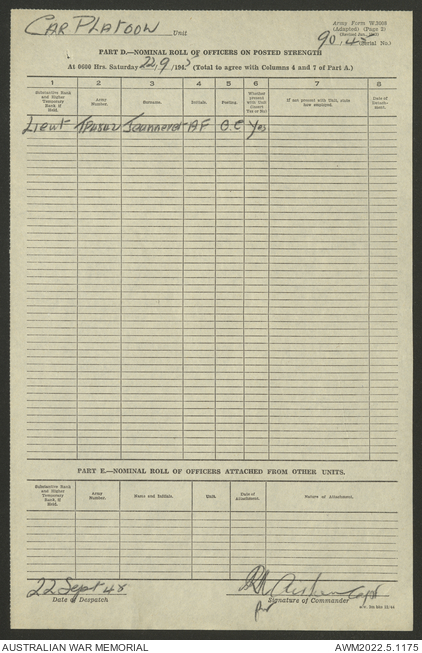 CAR PLATOON Unit
Army Form W.3008
(Adapted) (Page 2)
90/45 (Serial No.)
PART D.—NOMINAL ROLL OF OFFICERS ON POSTED STRENGTH
At 0600 Hrs. Saturday 22/9/1945 (Total to agree with Columns 4 and 7 of Part A.)
1 2 3 4 5 6 7 8
Substantive Rank and Higher Temporary Rank if Held.
Army Number.
Surname.
Initials.
Posting.
Whether present with Unit (Insert Yes or No)
If not present with Unit, state how employed.
Date of Detachment.
Lieut AF O.C Yes
PART E.—NOMINAL ROLL OF OFFICERS ATTACHED FROM OTHER UNITS.
Substantive Rank and Higher Temporary Rank, if Held.
Army Number.
Name and Initials.
Unit.
Date of Attachment.
Nature of Attachment.
22 Sept 45
Capt
Date of Despatch
Signature of Commander
AUSTRALIAN WAR MEMORIAL
AWM2022.5.1175